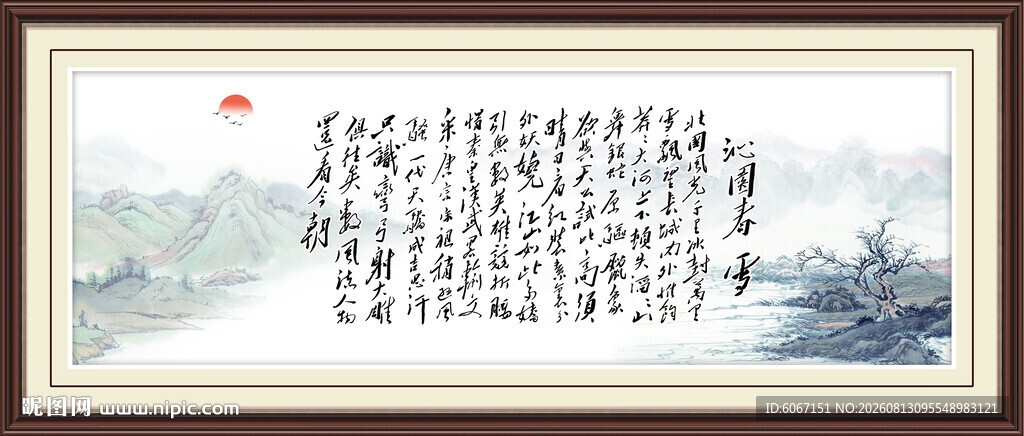 沁園春 雪
北國風光千里冰封萬里
雪飄望長城内外惟餘
莽〻大河上下頓失滔〻山
舞銀蛇原驅臘象
欲與天公試比高須
晴日看紅裝素裹分
外妖嬈江山如此多嬌
引無數英雄競折腰
惜秦皇漢武略輸文
采唐宗宋祖稍遜風
騷一代天驕成吉思汗
只識彎弓射大雕
俱往矣數風流人物
還看今朝
昵图网 www.nipic.com
ID:6067151 NO:20260813095548983121